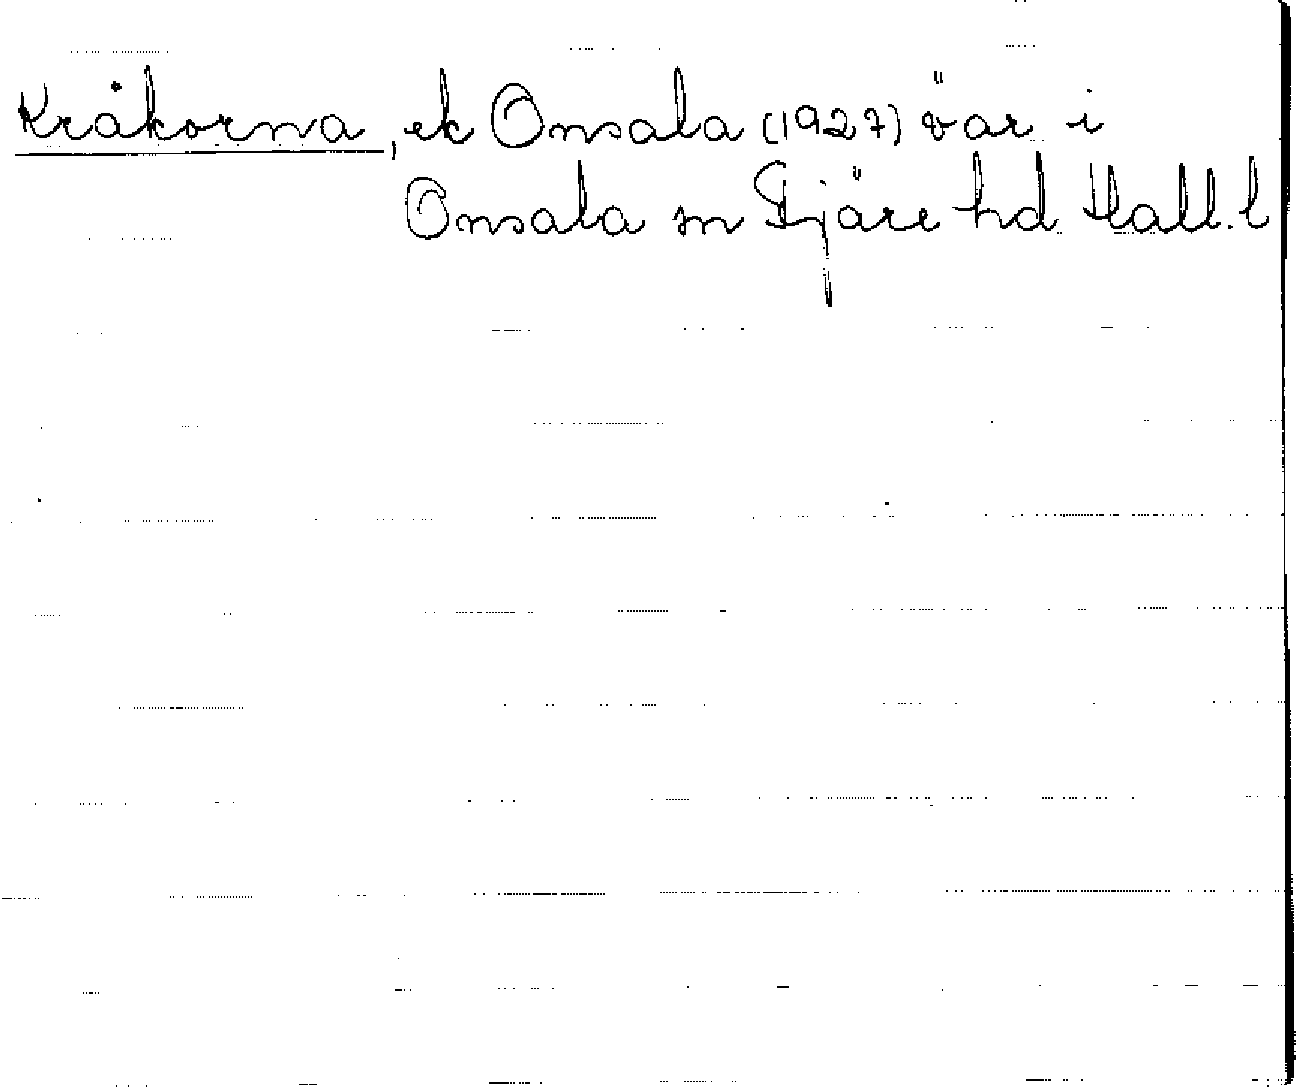 Kråkorna, ek Onsala (1927) öar i
Onsala sn Fjäre hd Hall. l